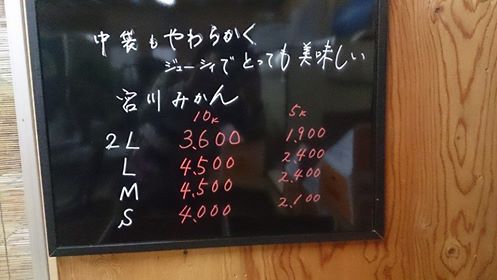 中袋もやわらかく
ジューシィでとっても美味しい
宮川みかん
10K 5K
2L 3.600 1.900
L 4.500 2.400
M 4.500 2.400
S 4.000 2.100